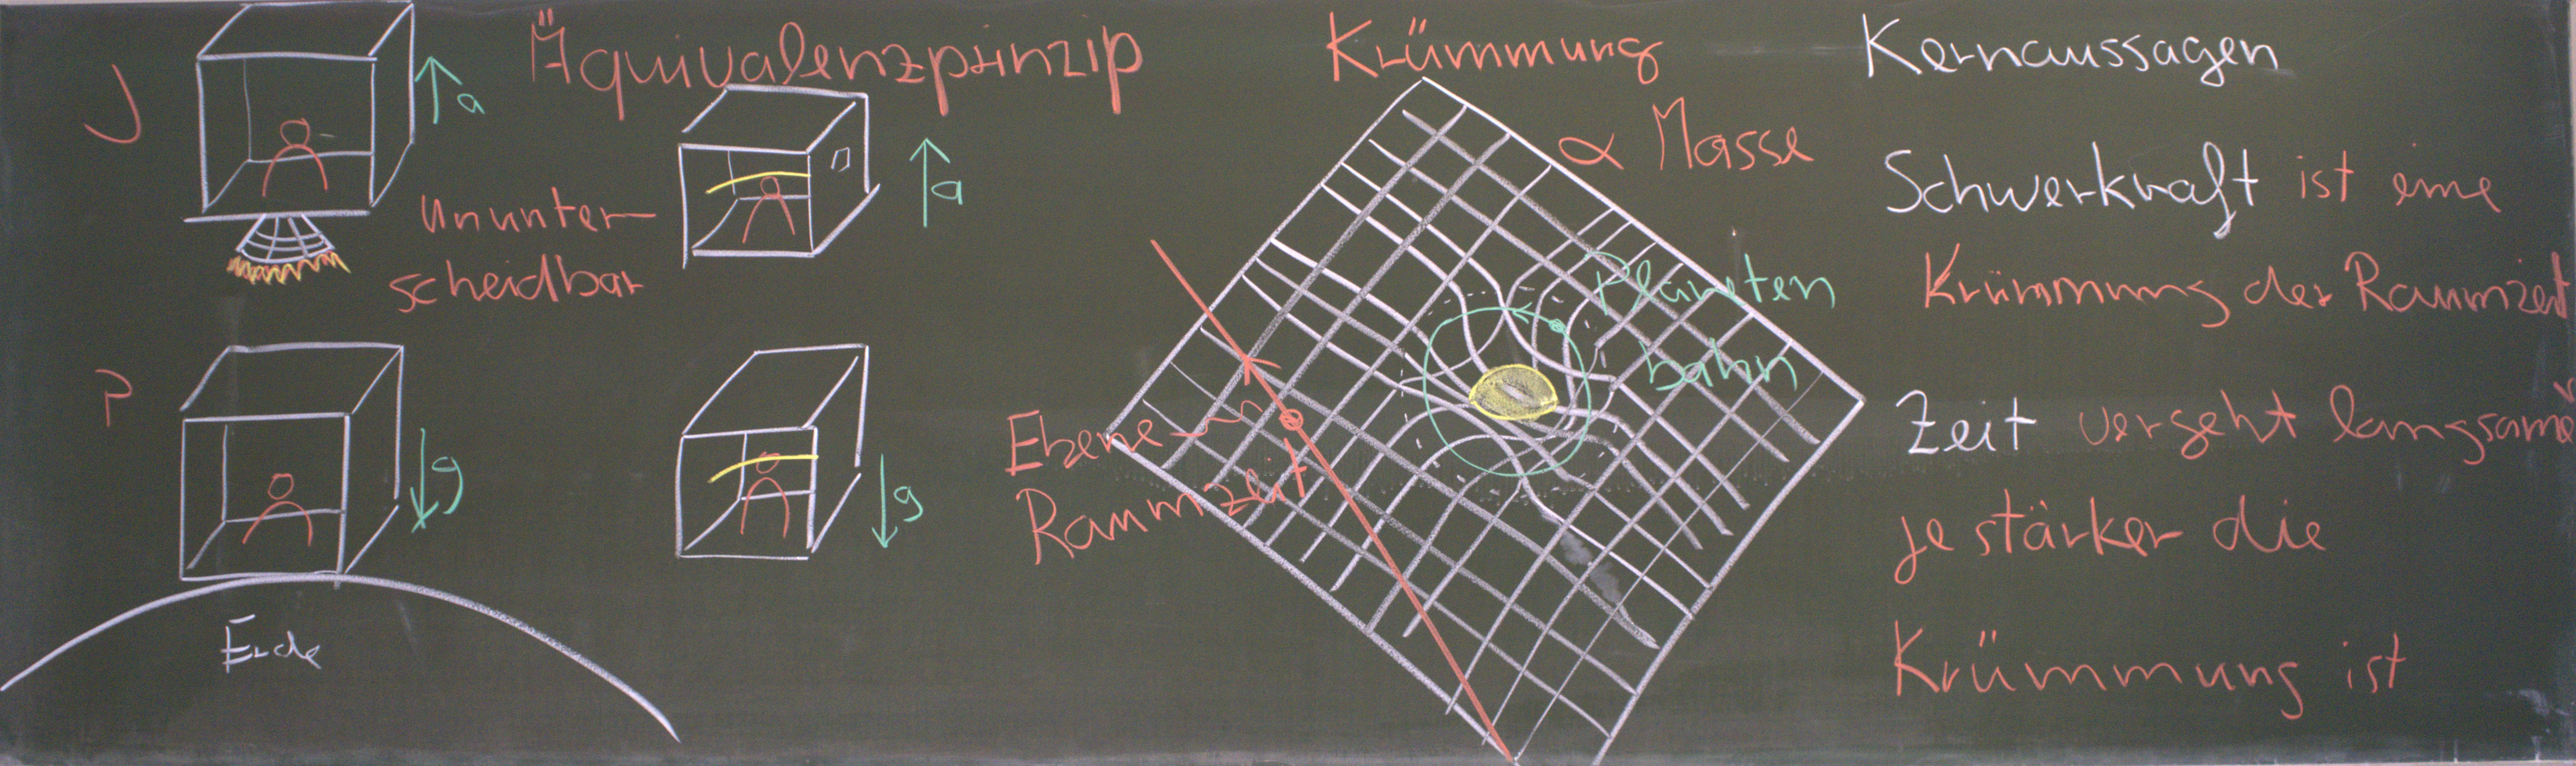 Äquivalenzprinzip
J
a
Ununter-
scheidbar
a
P
g
g
Erde
Krümmung
∝ Masse
Planeten
bahn
Ebene
Raumzeit
Kernaussagen
Schwerkraft ist eine
Krümmung der Raumzeit
Zeit vergeht langsamer
je stärker die
Krümmung ist